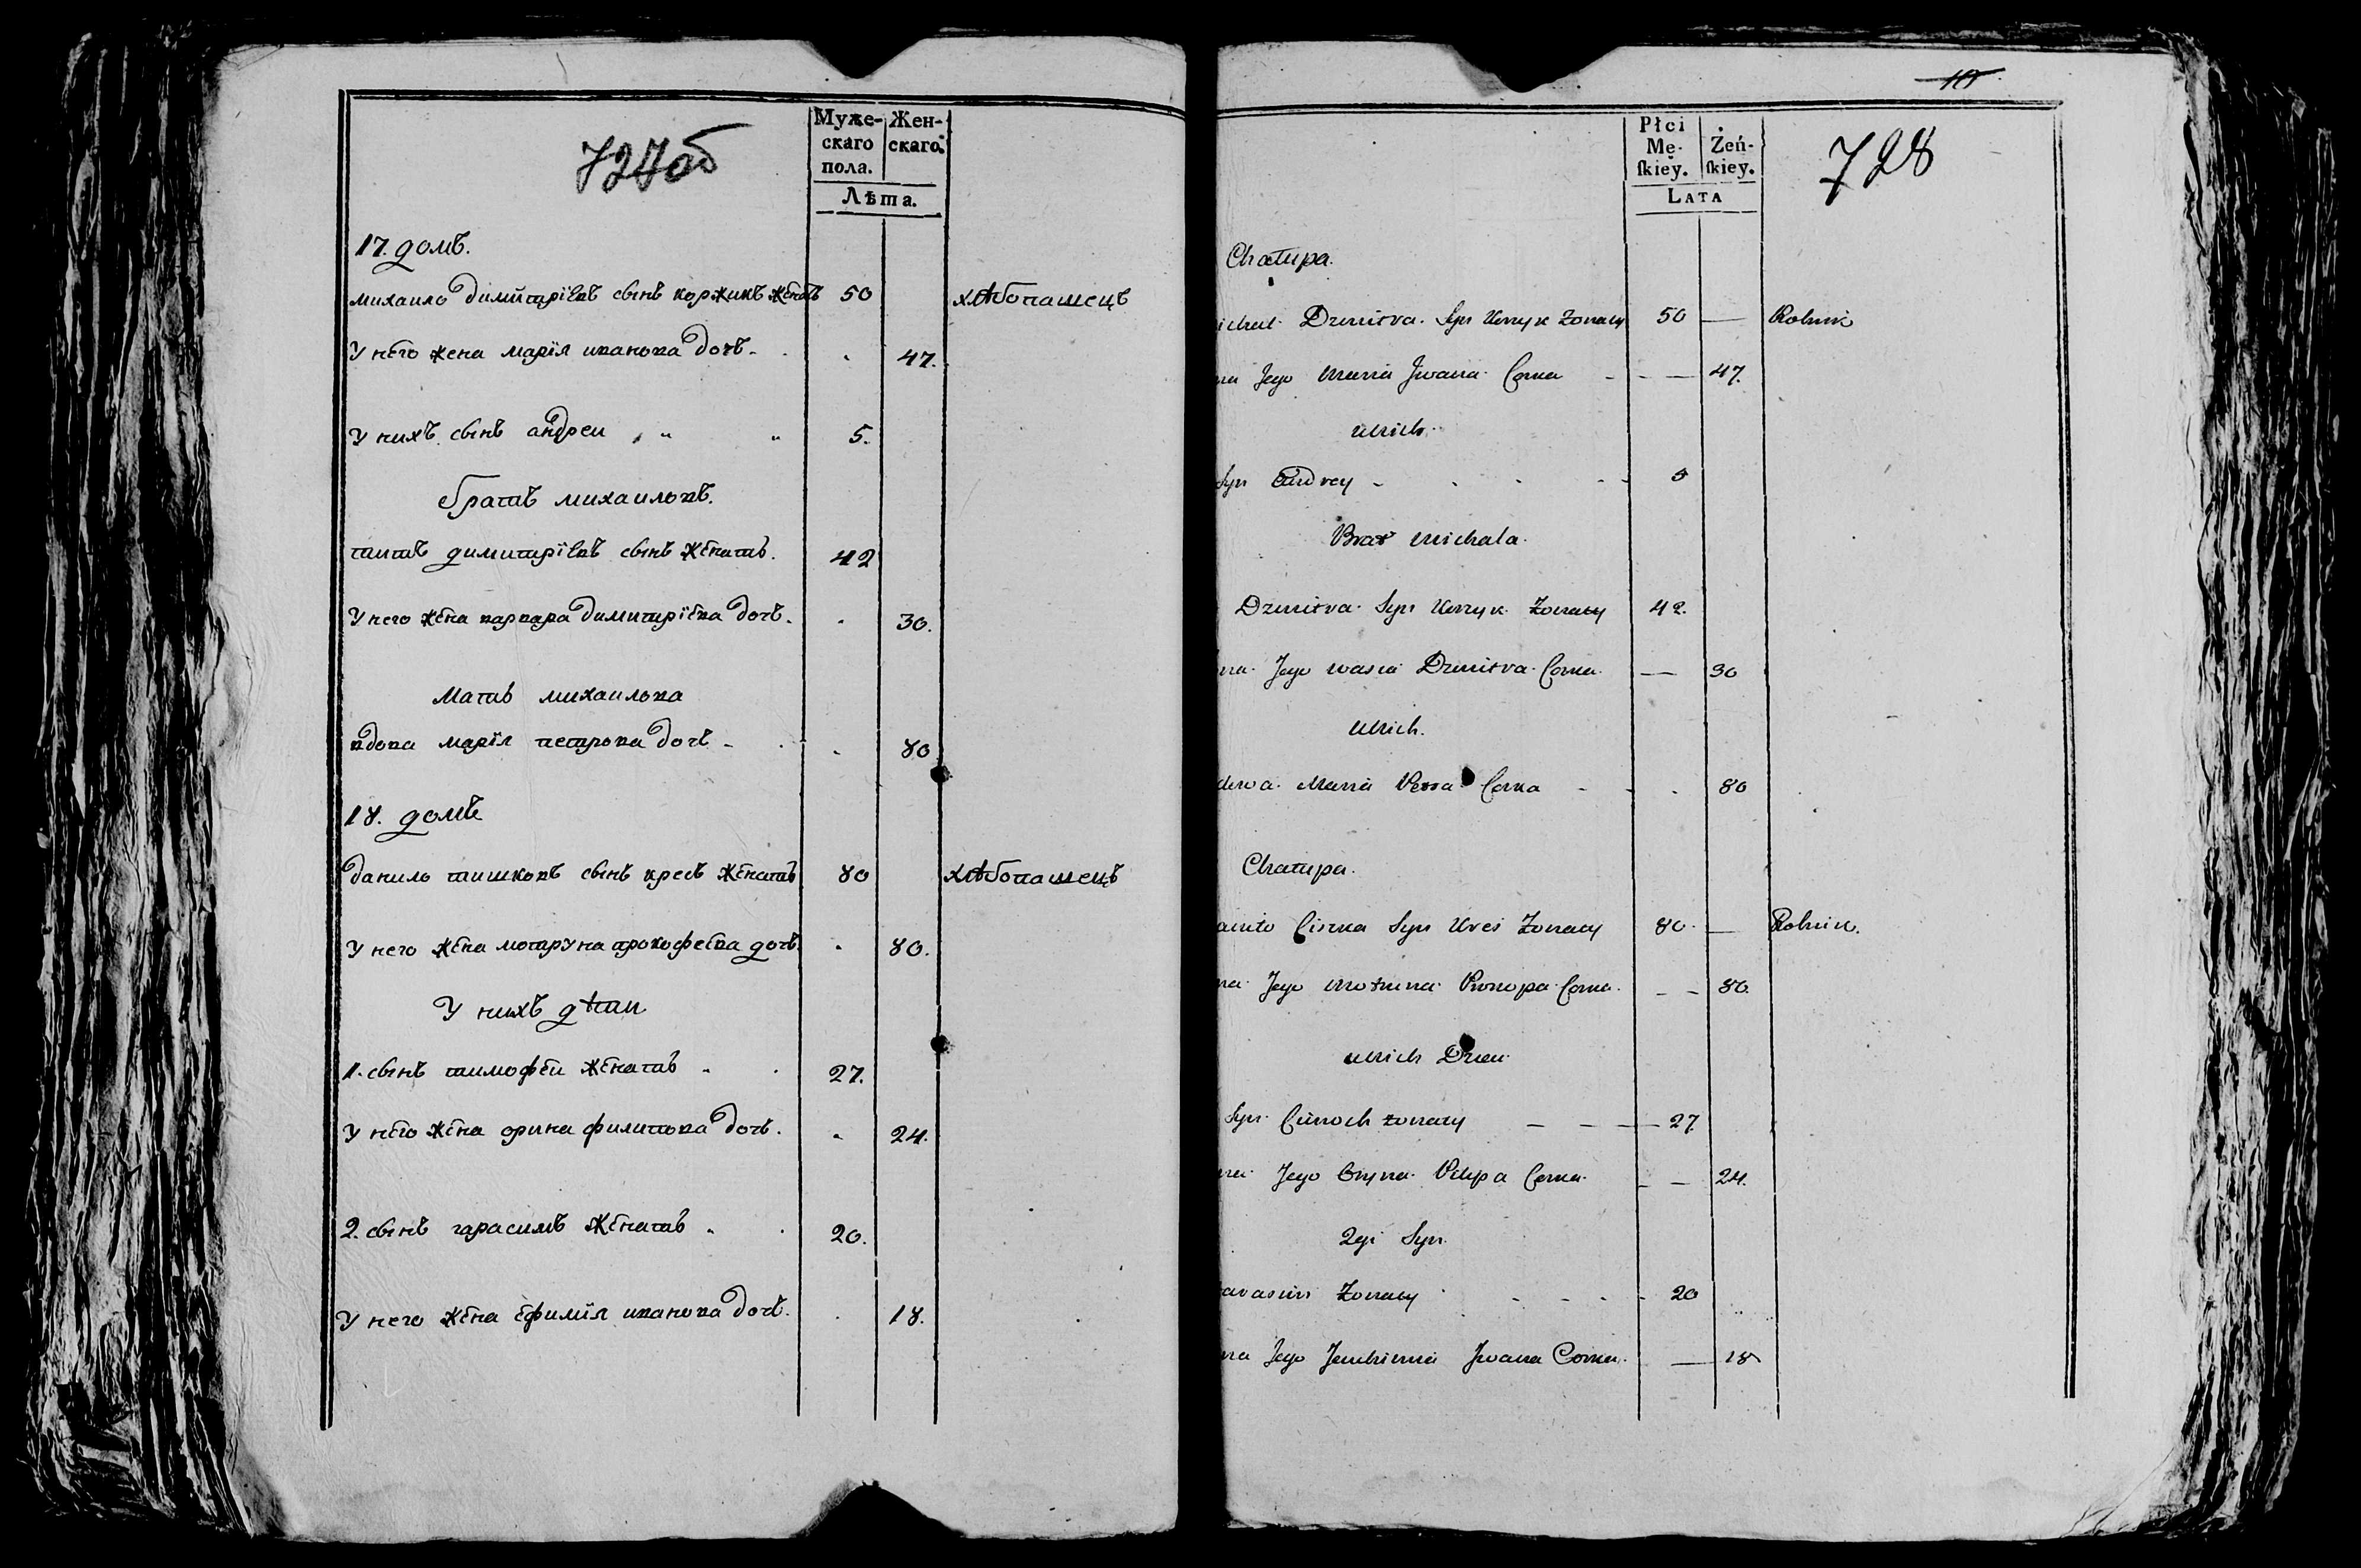 727об
Муже-
скаго
пола.
Жен-
скаго.
Лѣта.
17. домъ.
михаило димитрїевъ сынъ коржикъ женатъ 50 хлѣбопашецъ
У него жена марїя иванова дочь. 47.
У нихъ сынъ андреи 5.
братъ михаиловъ.
титъ димитрїевъ сынъ женатъ. 42
У него жена варвара димитрїева дочь. 30.
Мать михаилова
вдова марїя петрова дочь 80
18. домъ
данило тишковъ сынъ кресъ женатъ 80 хлѣбопашецъ
У него жена мотруна прокофеева дочь. 80.
У нихъ дѣти
1. сынъ тимофеи женатъ 27.
У него жена орина филипова дочь. 24.
2. сынъ гарасимъ женатъ 20.
У него жена ефимїя иванова дочь. 18.
10
Płci
Mę-
ſkiey.
Żeń-
ſkiey.
Lata
728
Chałupa.
ichał Dzmitra Syn Korżyk Żonaty 50 — Rolnik
na Jego Maria Jwana Corka — 47.
u nich
Syn Andrey 5
Brat Michala.
Dzmitra Syn Korżyk Żonaty 42.
na Jego wasia Dzmitra Corka — 30
u nich.
dowa Maria Petra Corka 80
Chałupa.
aniło Ciszka Syn Kres Żonaty 80 — Rolnik.
na Jego Motruna Prokopa Corka 80.
u nich Dzieci
Syn Cimoch żonaty — 27.
na Jego Oryna Pilipa Corka — 24.
2gi Syn
arasim Żonaty 20
na Jego Jewhimia Jwana Corka. — 18